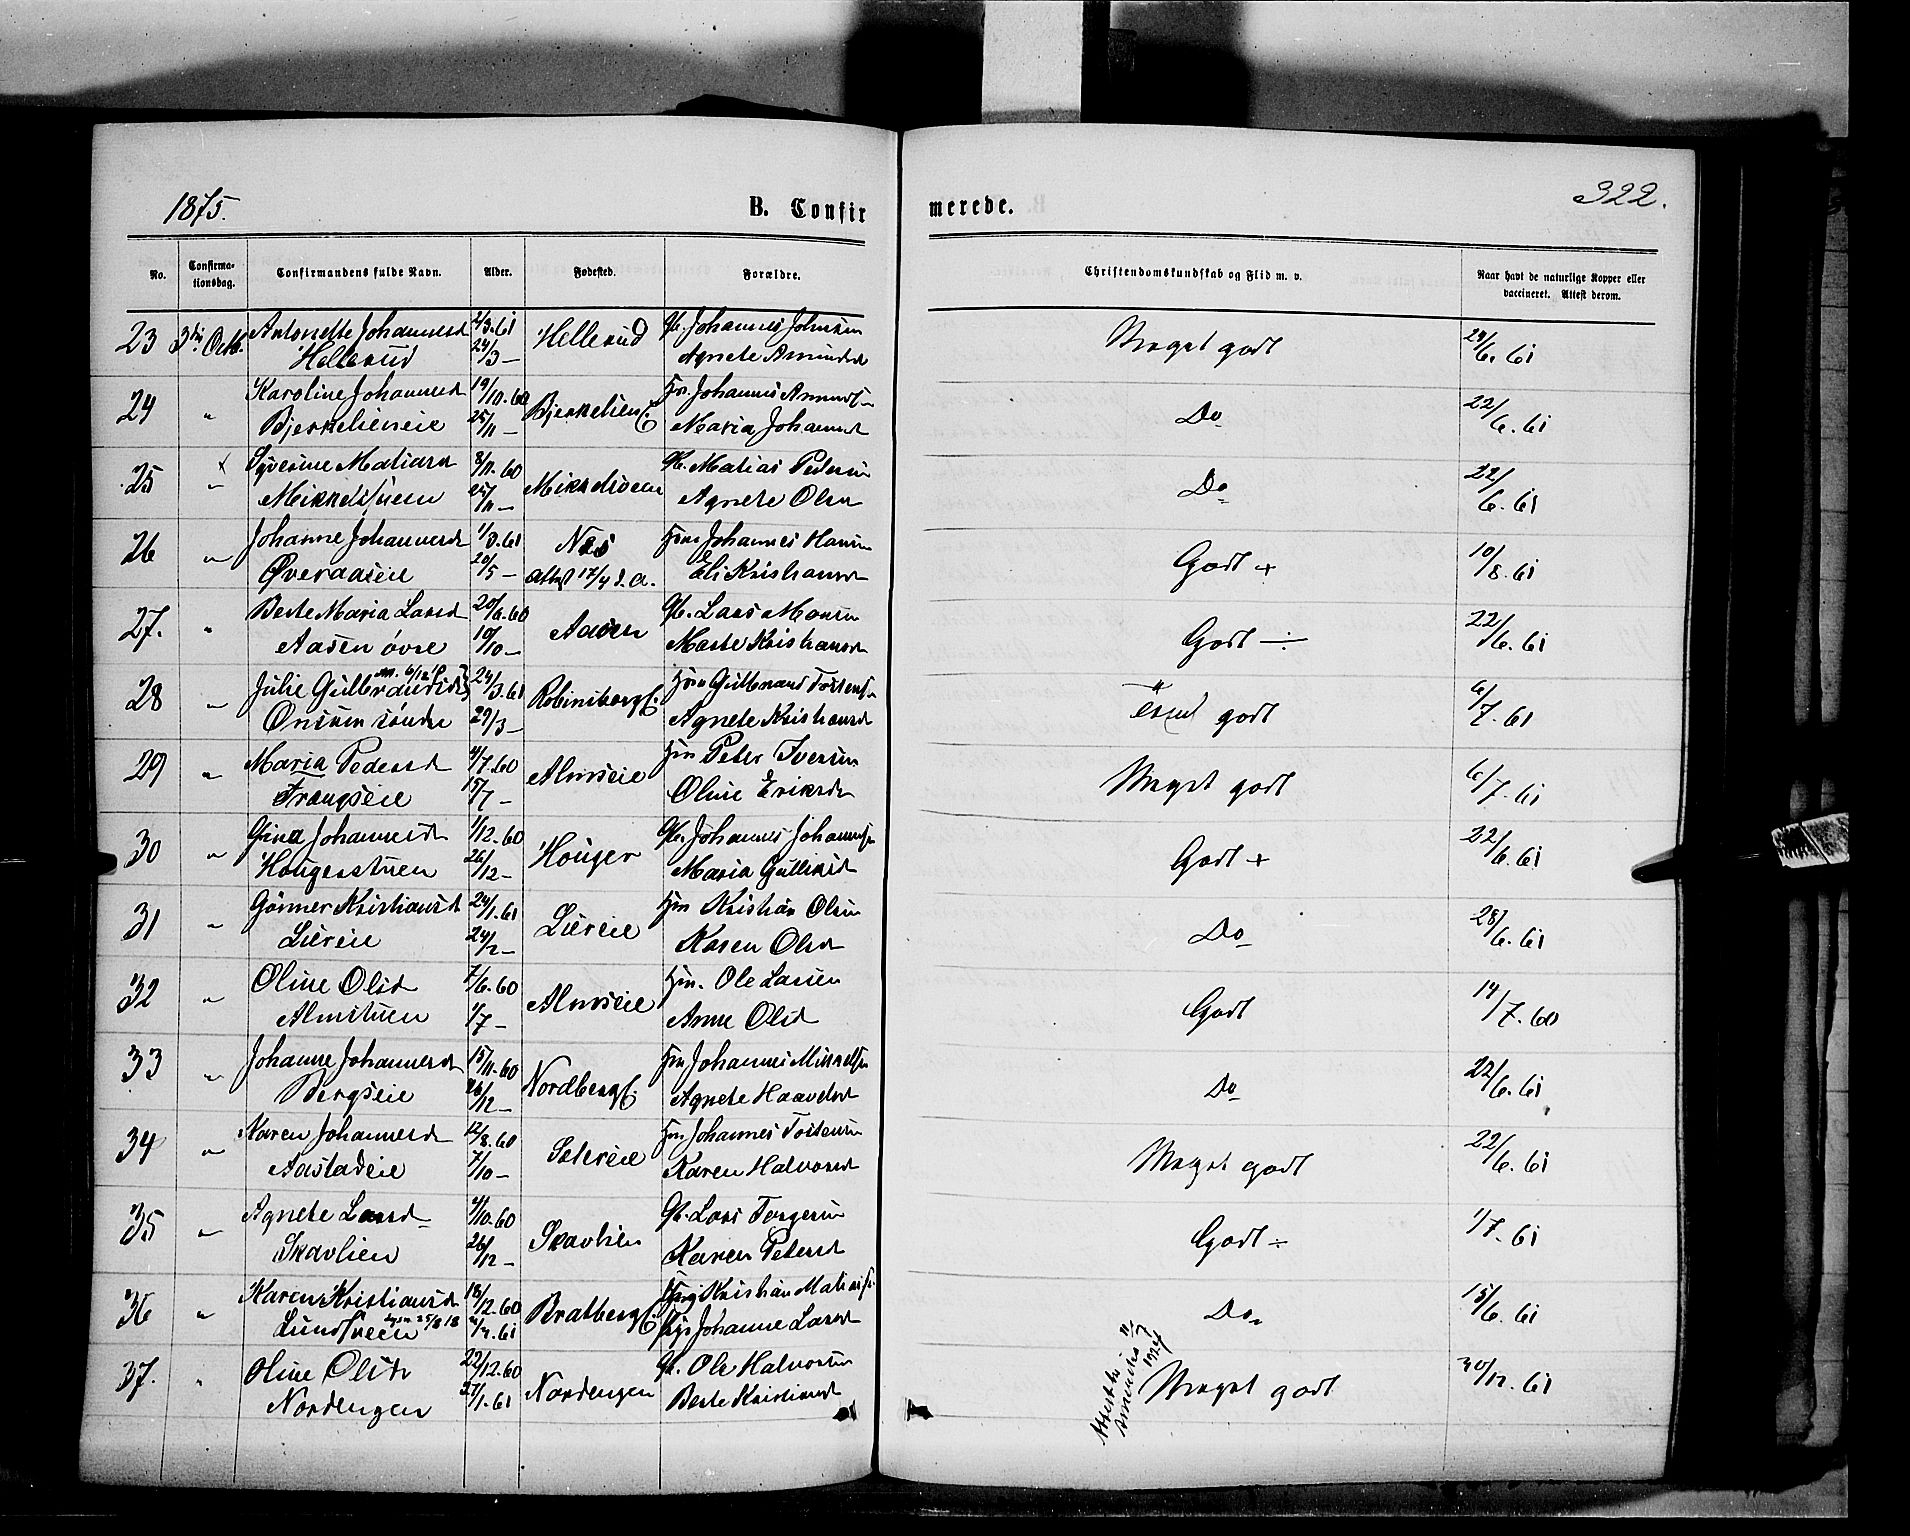 1875.
B. Confirmerede.
322.
No.
Confirmationsdag.
Confirmandens fulde Navn.
Alder.
Fødested.
Forældre.
Christendomskundskab og Flid m. v.
Naar havt de naturlige Kopper eller vaccineret. Attest derom.
23 3die Octb. Antonette Johannesd 2/3.61 Hellerud Gb. Johannes Johnsen Meget godt 6.61
Hellerud 24/3 — Agnete Amundsd
24 " Karoline Johannesd 19/10.60 Bjerkelien E. Hm. Johannes Amundsn Do 22/6.61
Bjerkelieneie 25/11 — Maria Johannesd
25 " Syverine Matiasd 8/11.60 Mikkelsveen Gb. Matias Pedersen Do 22/6.61
Mikkelsveen 25/11 — Agnete Olsd
26 " Johanne Johannesd 1/3.61 Næs Hm Johannes Hansen Godt + 10/8.61
Øveraaseie 20/5 — Attest 17/4 d. A. Eli Kristiansd
27. " Berte Maria Larsd 20/6.60 Aasen Gb. Lars Monsen Godt ÷ 22/6.61
Aasen øvre 10/10 — Marte Kristiansd
28 " Julie Gulbrandsd 24/3.61 Robinsberg E. Hm Gulbrand Tostensn godt 6/7.61
Onsum søndre 29/3 — Agnete Kristiansd
29 " Maria Pedersd 4/7.60 Almseie Hm Peter Iversen Meget godt 6/7.61
Trangseie 15/7 — Oline Eriksd
30 " Gina Johannesd 1/12.60 Houger Gb. Johannes Johannesn Godt + 22/6.61
Hougerstuen 26/12 — Maria Gulliksd
31 " Gunner Kristiansd 24/1.61 Liereie Hm Kristian Olsen Do 28/6.61
Liereie 24/2 — Karen Olsd
32 " Oline Olsd 7/6.60 Almseie Hm. Ole Larsen Godt 14/7.60
Almstuen 1/7 — Anne Olsd
33 " Johanne Johannesd 15/11.60 Nordberg E. Hm Johannes Mikkelsn Do 22/6.61
Bergseie 26/12 — Agnete Haavelsd
34 " Karen Johannesd 12/8.60 Setereie Hm Johannes Tostensen Meget godt 22/6.61
Aastadeie 7/10 — Karen Halvorsd
35 " Agnete Larsd 4/10.60 Skavlien Gb. Lars Torgersen Godt ÷ 1/7.61
Skavlien 26/12 — Karen Petersd
36 " Karen Kristiansd 18/12.60 Bratberg E. Kristian Matiasn Do 15/6.61
Lundsveen 25/8 18 /4.61 Johanne Larsd
37. " Oline Olsd 22/12.60 Nordengen Gb. Ole Halvorsen Meget godt 30/12.61
Nordengen 27/1.61 Berte Kristiansd